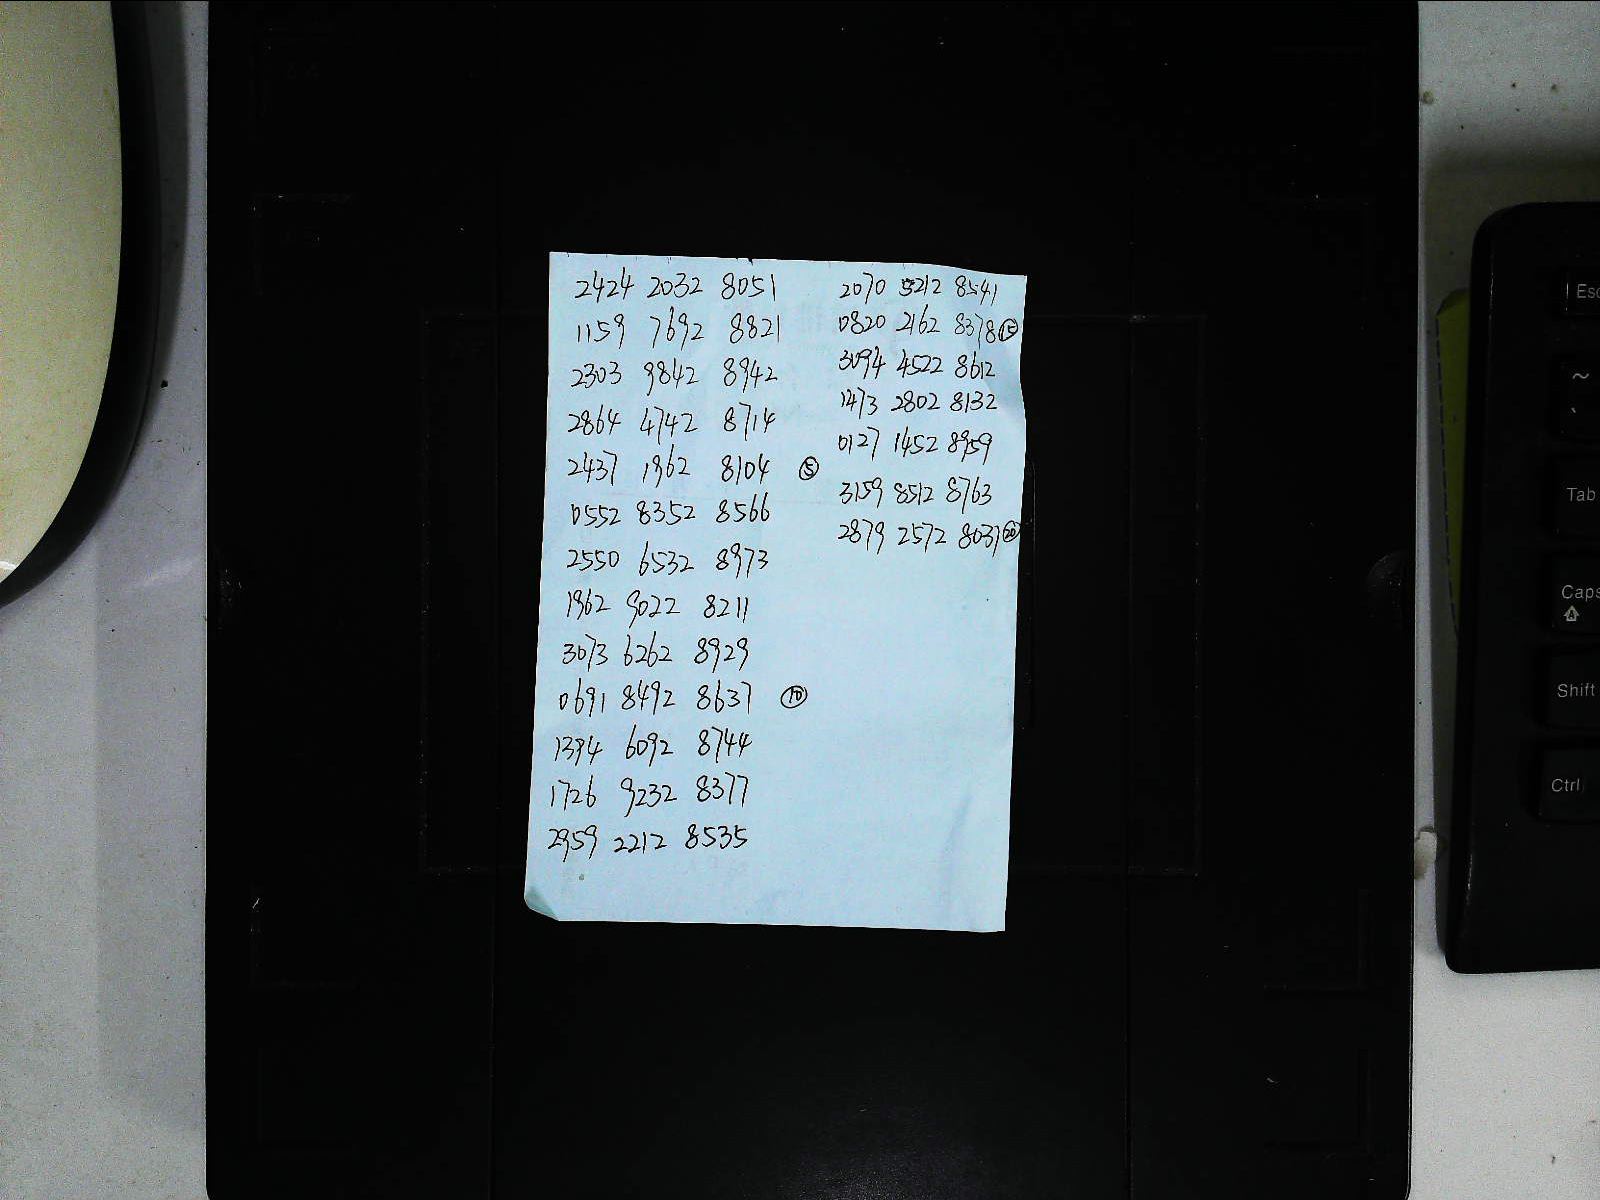 2424 2032 8051
1159 7692 8821
2303 9842 8942
2864 4742 8714
2437 1962 8104 ⑤
0552 8352 8566
2550 6532 8973
1962 9022 8211
3073 6262 8929
0691 8492 8637 ⑩
1394 6092 8744
1726 9232 8377
2959 2212 8535
2070 5212 8541
0820 2162 8378 ⑮
3094 4522 8612
1473 2802 8132
0127 1452 8959
3159 8512 8763
2879 2572 8037 ⑳
Esc
~
`
Tab
Caps
A
Shift
Ctrl